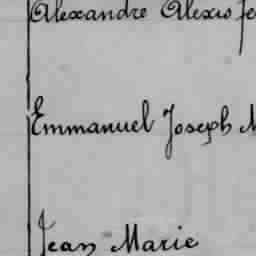 Alexandre Alexis
Emmanuel Joseph
Jean Marie